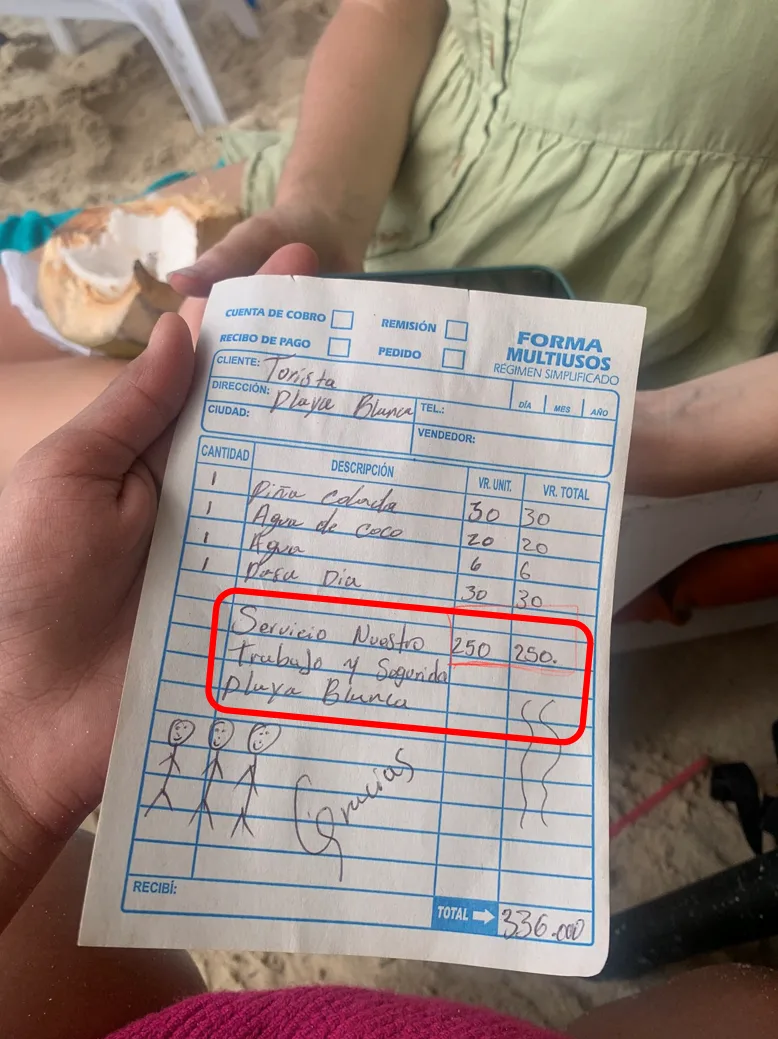 CUENTA DE COBRO
REMISIÓN
RECIBO DE PAGO
PEDIDO
FORMA
MULTIUSOS
RÉGIMEN SIMPLIFICADO
CLIENTE: Torista
DIRECCIÓN: Playa Blanca
TEL.:
DÍA MES AÑO
CIUDAD:
VENDEDOR:
CANTIDAD DESCRIPCIÓN VR. UNIT. VR. TOTAL
1 Piña colada 30 30
1 Agua de coco 20 20
1 Agua 6 6
1 Pasa Dia 30 30
Servicio Nuestro 250 250.
Trabajo y Segurida
Playa Blanca
Gracias
RECIBÍ:
TOTAL 336.000